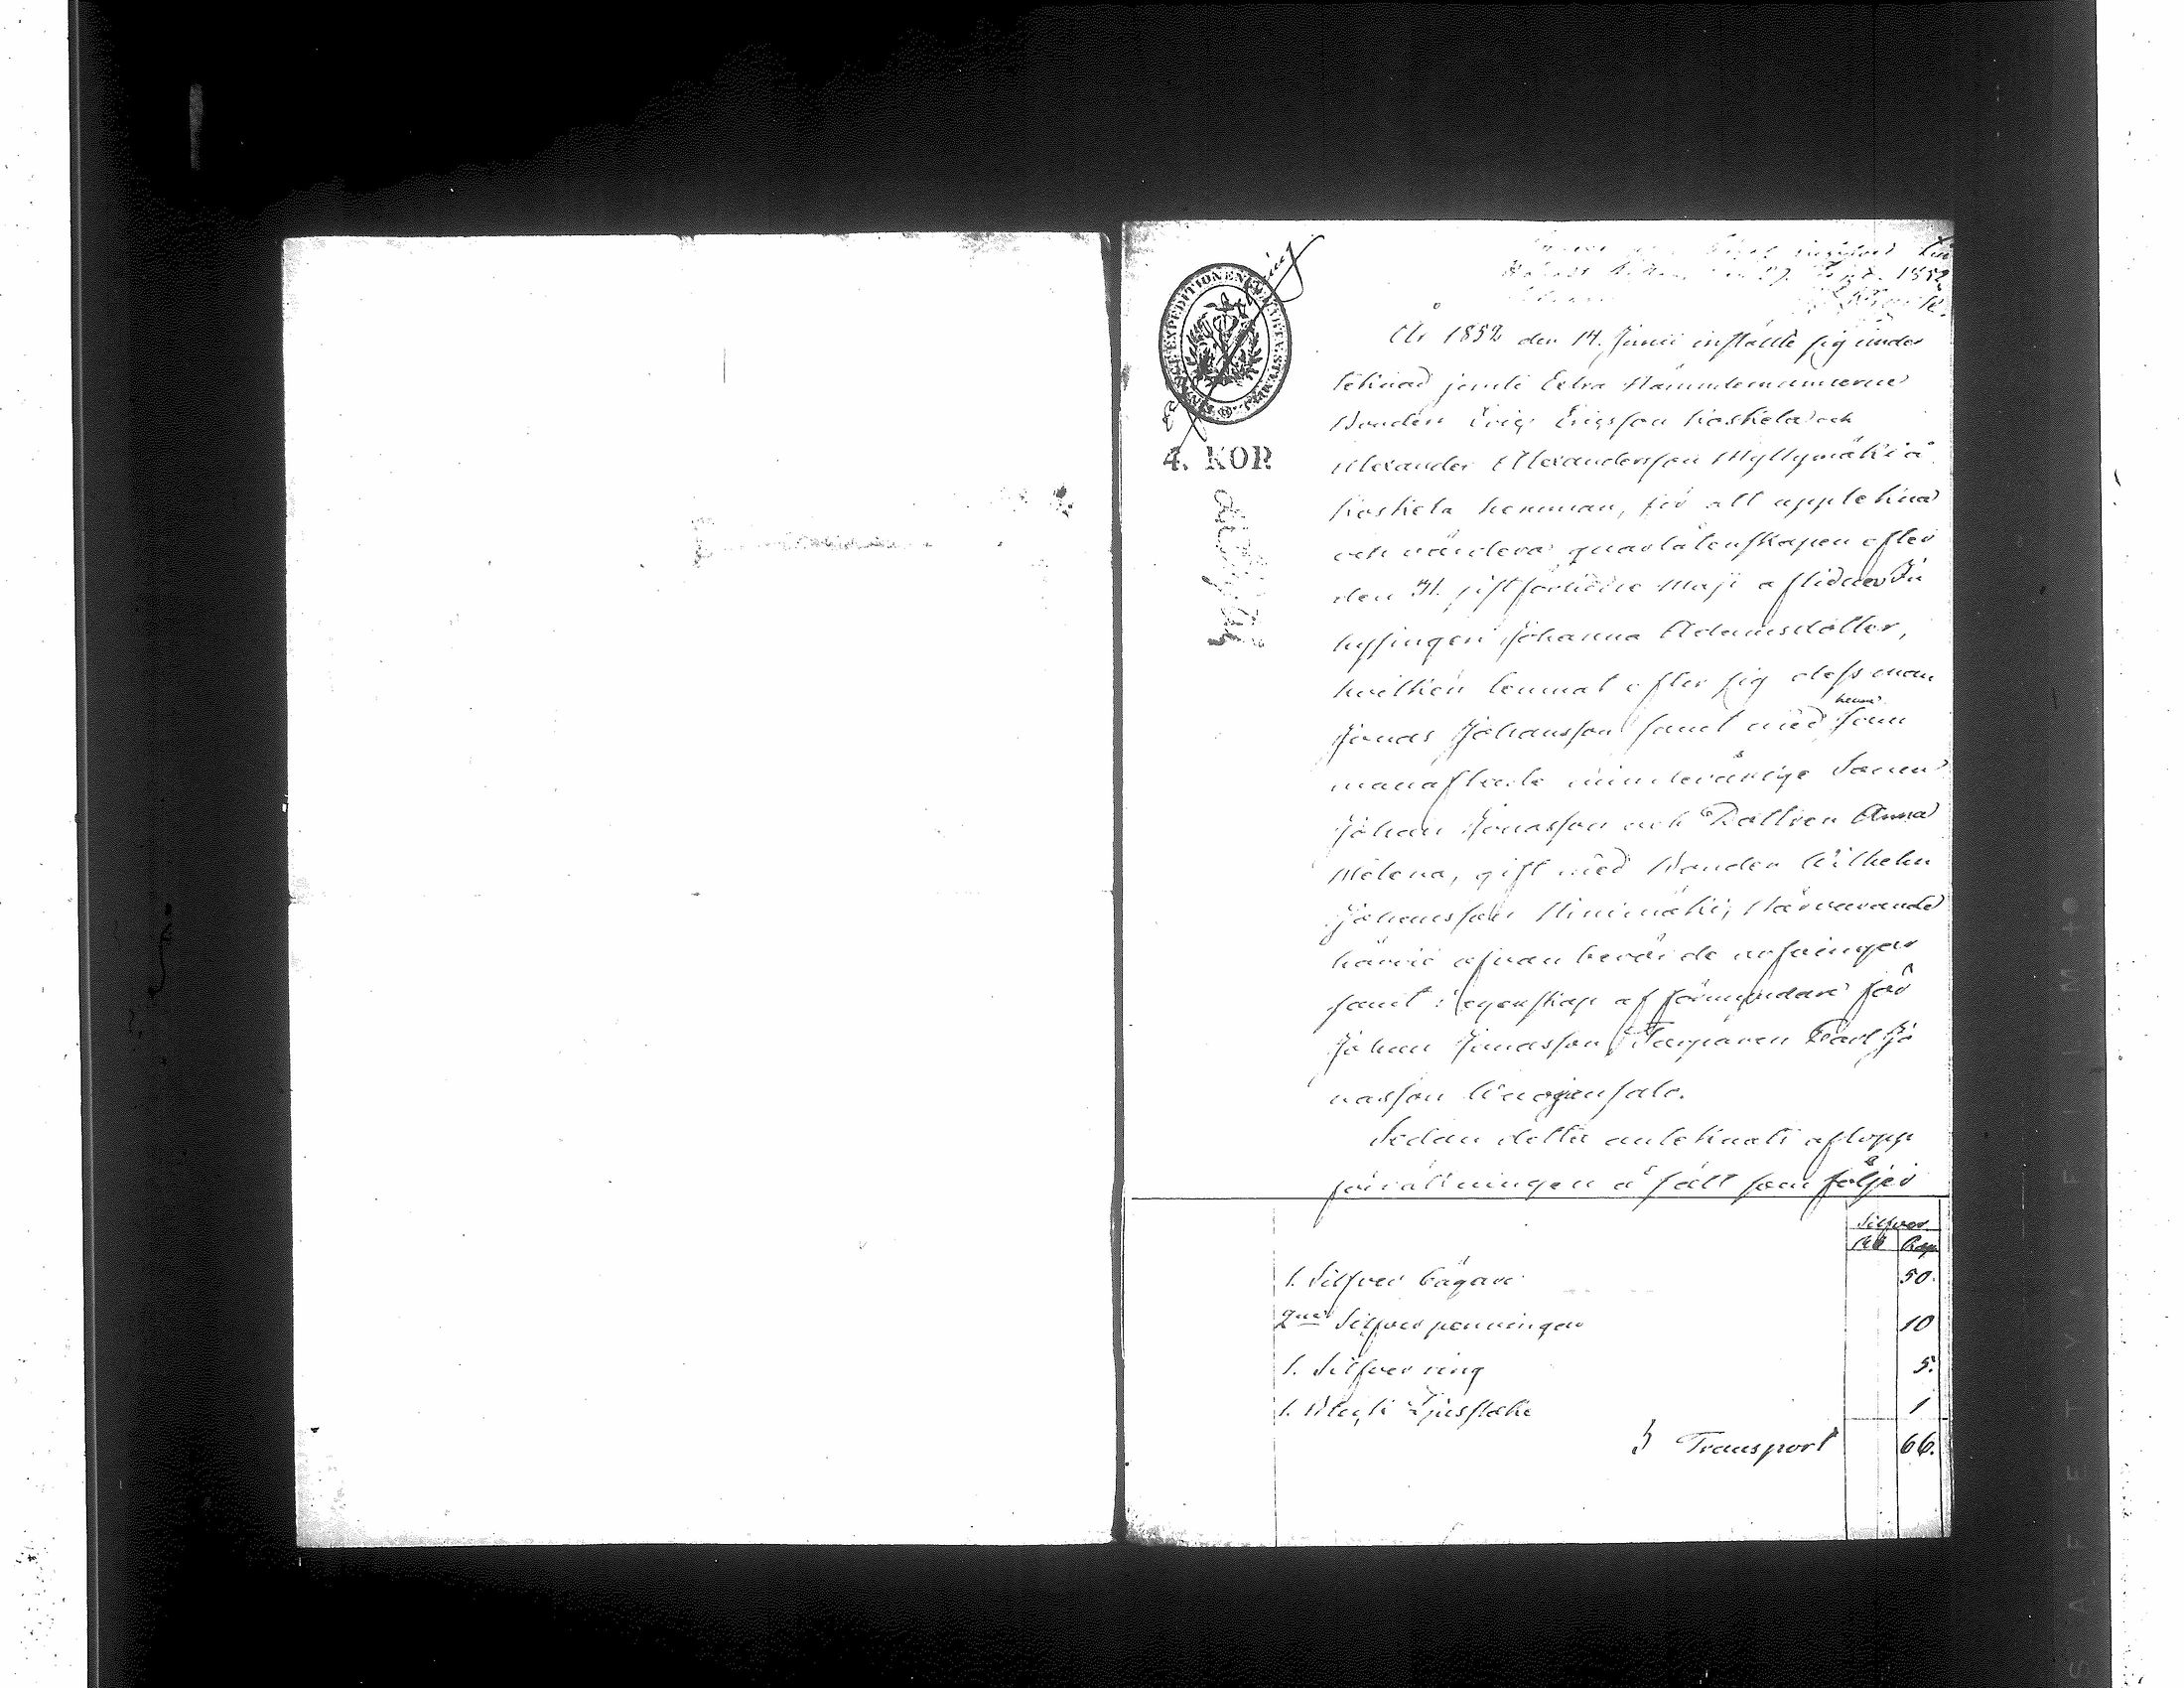 1852
År 1852 den 14. Junii inställde sig under
teknad jemte Extra Nämndemännerne
Bonden Eric Ericsson Koskela och
Alexander Alexandersson Myllymäki å
Koskela hemman, för att uppteckna
och värdera qvarlåtenskapen efter
den 31. sistförlidne Maji aflidne In
hysingen Johanna Adamsdotter,
hvilken lemnat efter sig dess man
Jonas Johansson samt med honom sam
manaflade minderårige Sonen
Johan Jonasson och Dottren Anna
Helena, gift med Bonden Wilhelm
Johansson Niinimäki, Närvarande
härvid ofvan berörde arfvingar
samt i egenskap af förmyndare för
Johan Jonasson Torparen Carl Jo
nasson
Sedan detta anteknats aflopp
förrättningen å sätt som följer
Silfver
Rub Kop
1. Silfver bägare 50.
2ne Silfver penningar 10
1. Silfver ring 5.
1. Ljusstake 1
Transport 66.
4. KOP.